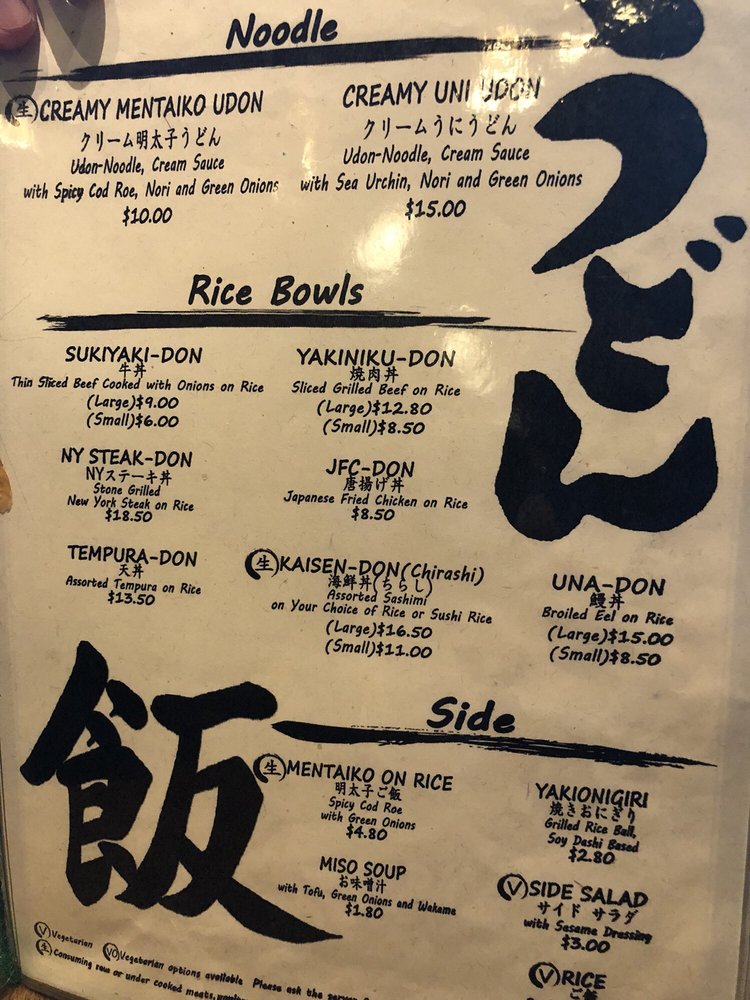 Noodle
うどん
生 CREAMY MENTAIKO UDON
クリーム明太子うどん
Udon-Noodle, Cream Sauce
with Spicy Cod Roe, Nori and Green Onions
$10.00
CREAMY UNI UDON
クリームうにうどん
Udon-Noodle, Cream Sauce
with Sea Urchin, Nori and Green Onions
$15.00
Rice Bowls
SUKIYAKI-DON
牛丼
Thin Sliced Beef Cooked with Onions on Rice
(Large)$9.00
(Small)$6.00
YAKINIKU-DON
焼肉丼
Sliced Grilled Beef on Rice
(Large)$12.80
(Small)$8.50
NY STEAK-DON
NYステーキ丼
Stone Grilled
New York Steak on Rice
$18.50
JFC-DON
唐揚げ丼
Japanese Fried Chicken on Rice
$8.50
TEMPURA-DON
天丼
Assorted Tempura on Rice
$13.50
生 KAISEN-DON(Chirashi)
海鮮丼(ちらし)
Assorted Sashimi
on Your Choice of Rice or Sushi Rice
(Large)$16.50
(Small)$11.00
UNA-DON
鰻丼
Broiled Eel on Rice
(Large)$15.00
(Small)$8.50
飯
Side
生 MENTAIKO ON RICE
明太子ご飯
Spicy Cod Roe
with Green Onions
$4.80
YAKIONIGIRI
焼きおにぎり
Grilled Rice Ball,
Soy Dashi Based
$2.80
MISO SOUP
お味噌汁
with Tofu, Green Onions and Wakame
$1.80
V SIDE SALAD
サイド サラダ
with Sesame Dressing
$3.00
V RICE
ご飯
V Vegetarian VO Vegetarian options available Please ask the server
生 Consuming raw or under cooked meats,